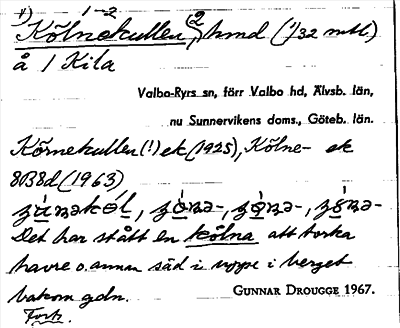 1) 1-2
Kölnekullen, 2, hmd (1/32 mtl)
å 1 Kila
Valbo-Ryrs sn, förr Valbo hd, Älvsb. län,
nu Sunnervikens doms., Göteb. län.
Körnekullen (!) ek (1925), Kölne- ek
8B8d (1963)
Det har stått en kölna att torka
havre o. annan säd i uppe i berget
bakom gdn. GUNNAR DROUGGE 1967.
Forts.